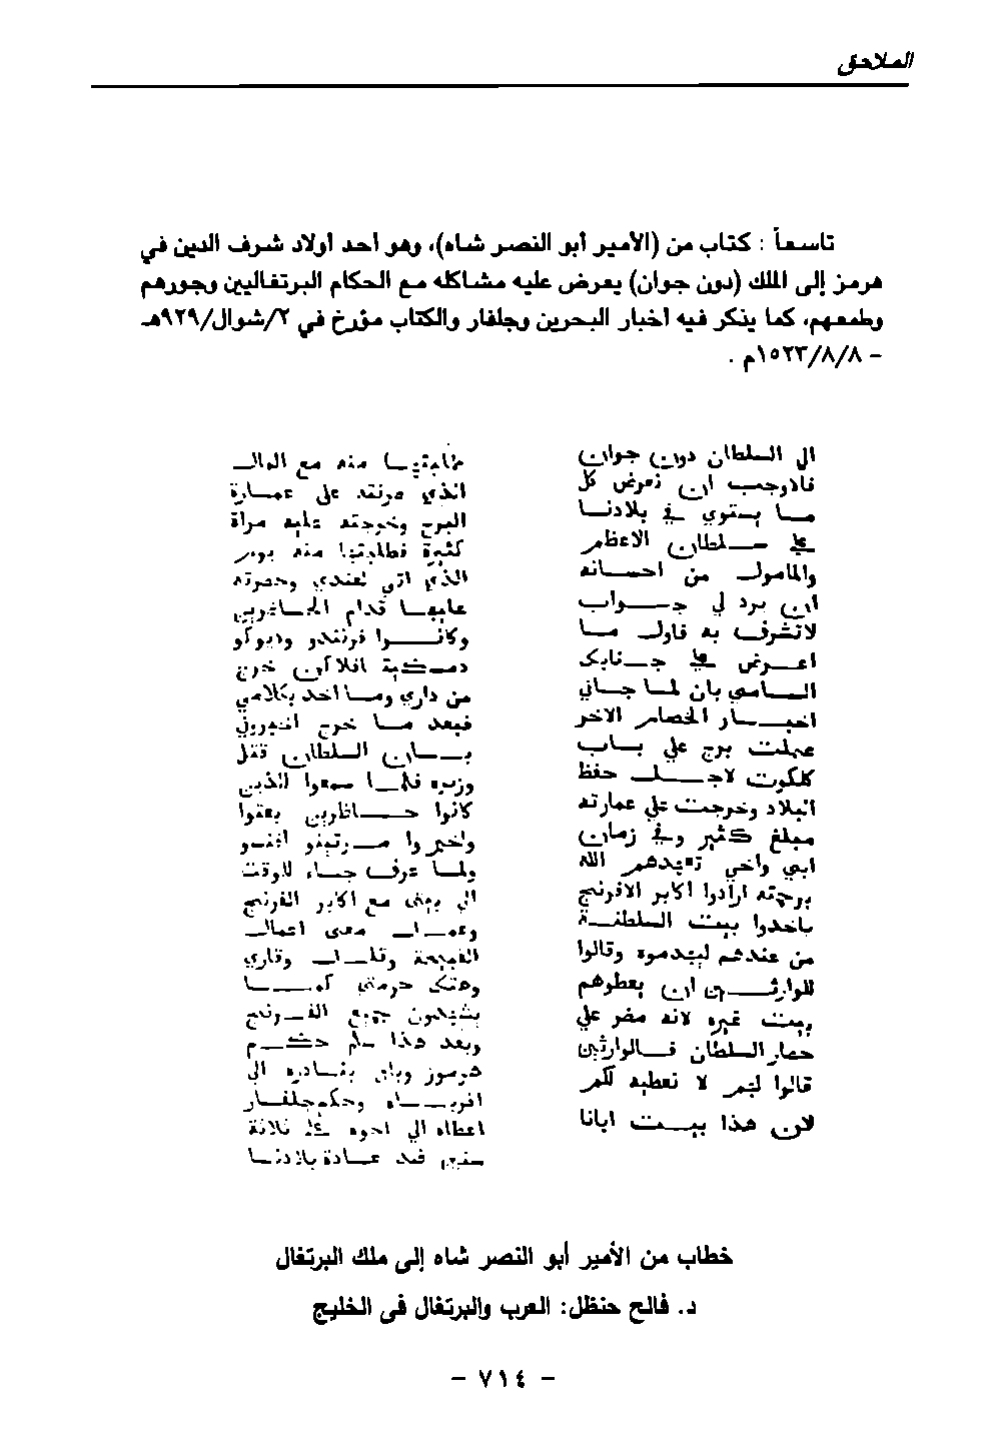 الملاحق
تاسعاً : كتاب من (الأمير أبو النصر شاه)، وهو أحد أولاد شرف الدين في
هرمز إلى الملك (دون جوان) يعرض عليه مشاكله مع الحكام البرتغاليين وجورهم
وطمعهم، كما يذكر فيه أخبار البحرين وجلفار والكتاب مؤرخ في ٢/شوال/٩٢٩هـ
- ١٥٢٣/٨/٨م .
الي السلطان دون جوان
فالاوجب ان نعرض كل
ما يستوي في بلادنا
علي سلطان الاعظم
والمامول من احسانه
ان يرد لي جواب
لاتشرف به فاول ما
اعرض علي جنابك
السامي بان لما جاني
اخبار الخصام الاخر
عملت برج علي باب
كلكوت لاجل حفظ
البلاد وخرجت علي عمارته
مبلغ كثير وفي زمان
ابي واخي الله
ارادوا اكابر الافرنج
ياخدوا بيت السلطنة
من عندهم ليهدموه وقالوا
للوارثين ان يعطوهم
بيت غيره لانه مضر علي
حصار السلطان فالوارثين
قالوا لهم لا نعطيه لكم
لان هذا بيت ابانا
منه مع المال
الذي علي عمارة
البرج وخرجته عليه مراة
كثيرة فطلبتها منه يوم
الذي اتي لعندي
عليها قدام الحاضرين
وكانوا فرنندو
افلاكن خرج
من داري وما اخد بكلامي
فبعد ما خرج اخبروني
بان السلطان قتل
وزيره فلما سمعوا الذين
كانوا حاظرين بعتوا
واخبروا
ولما عرف جاء للوقت
الي بيتي مع اكابر الفرنج
وعمل معي اعمال
القبيحة
وهتك حرمتي كما
يشهدون جميع الفرنج
وبعد هذا سلم حكم
هرموز الي
وحكم جلفار
اعطاه الي اخوه علي ثلاثة
سنين ضد عادة بلادنا
خطاب من الأمير أبو النصر شاه إلى ملك البرتغال
د. فالح حنظل: العرب والبرتغال فى الخليج
- ٧١٤ -